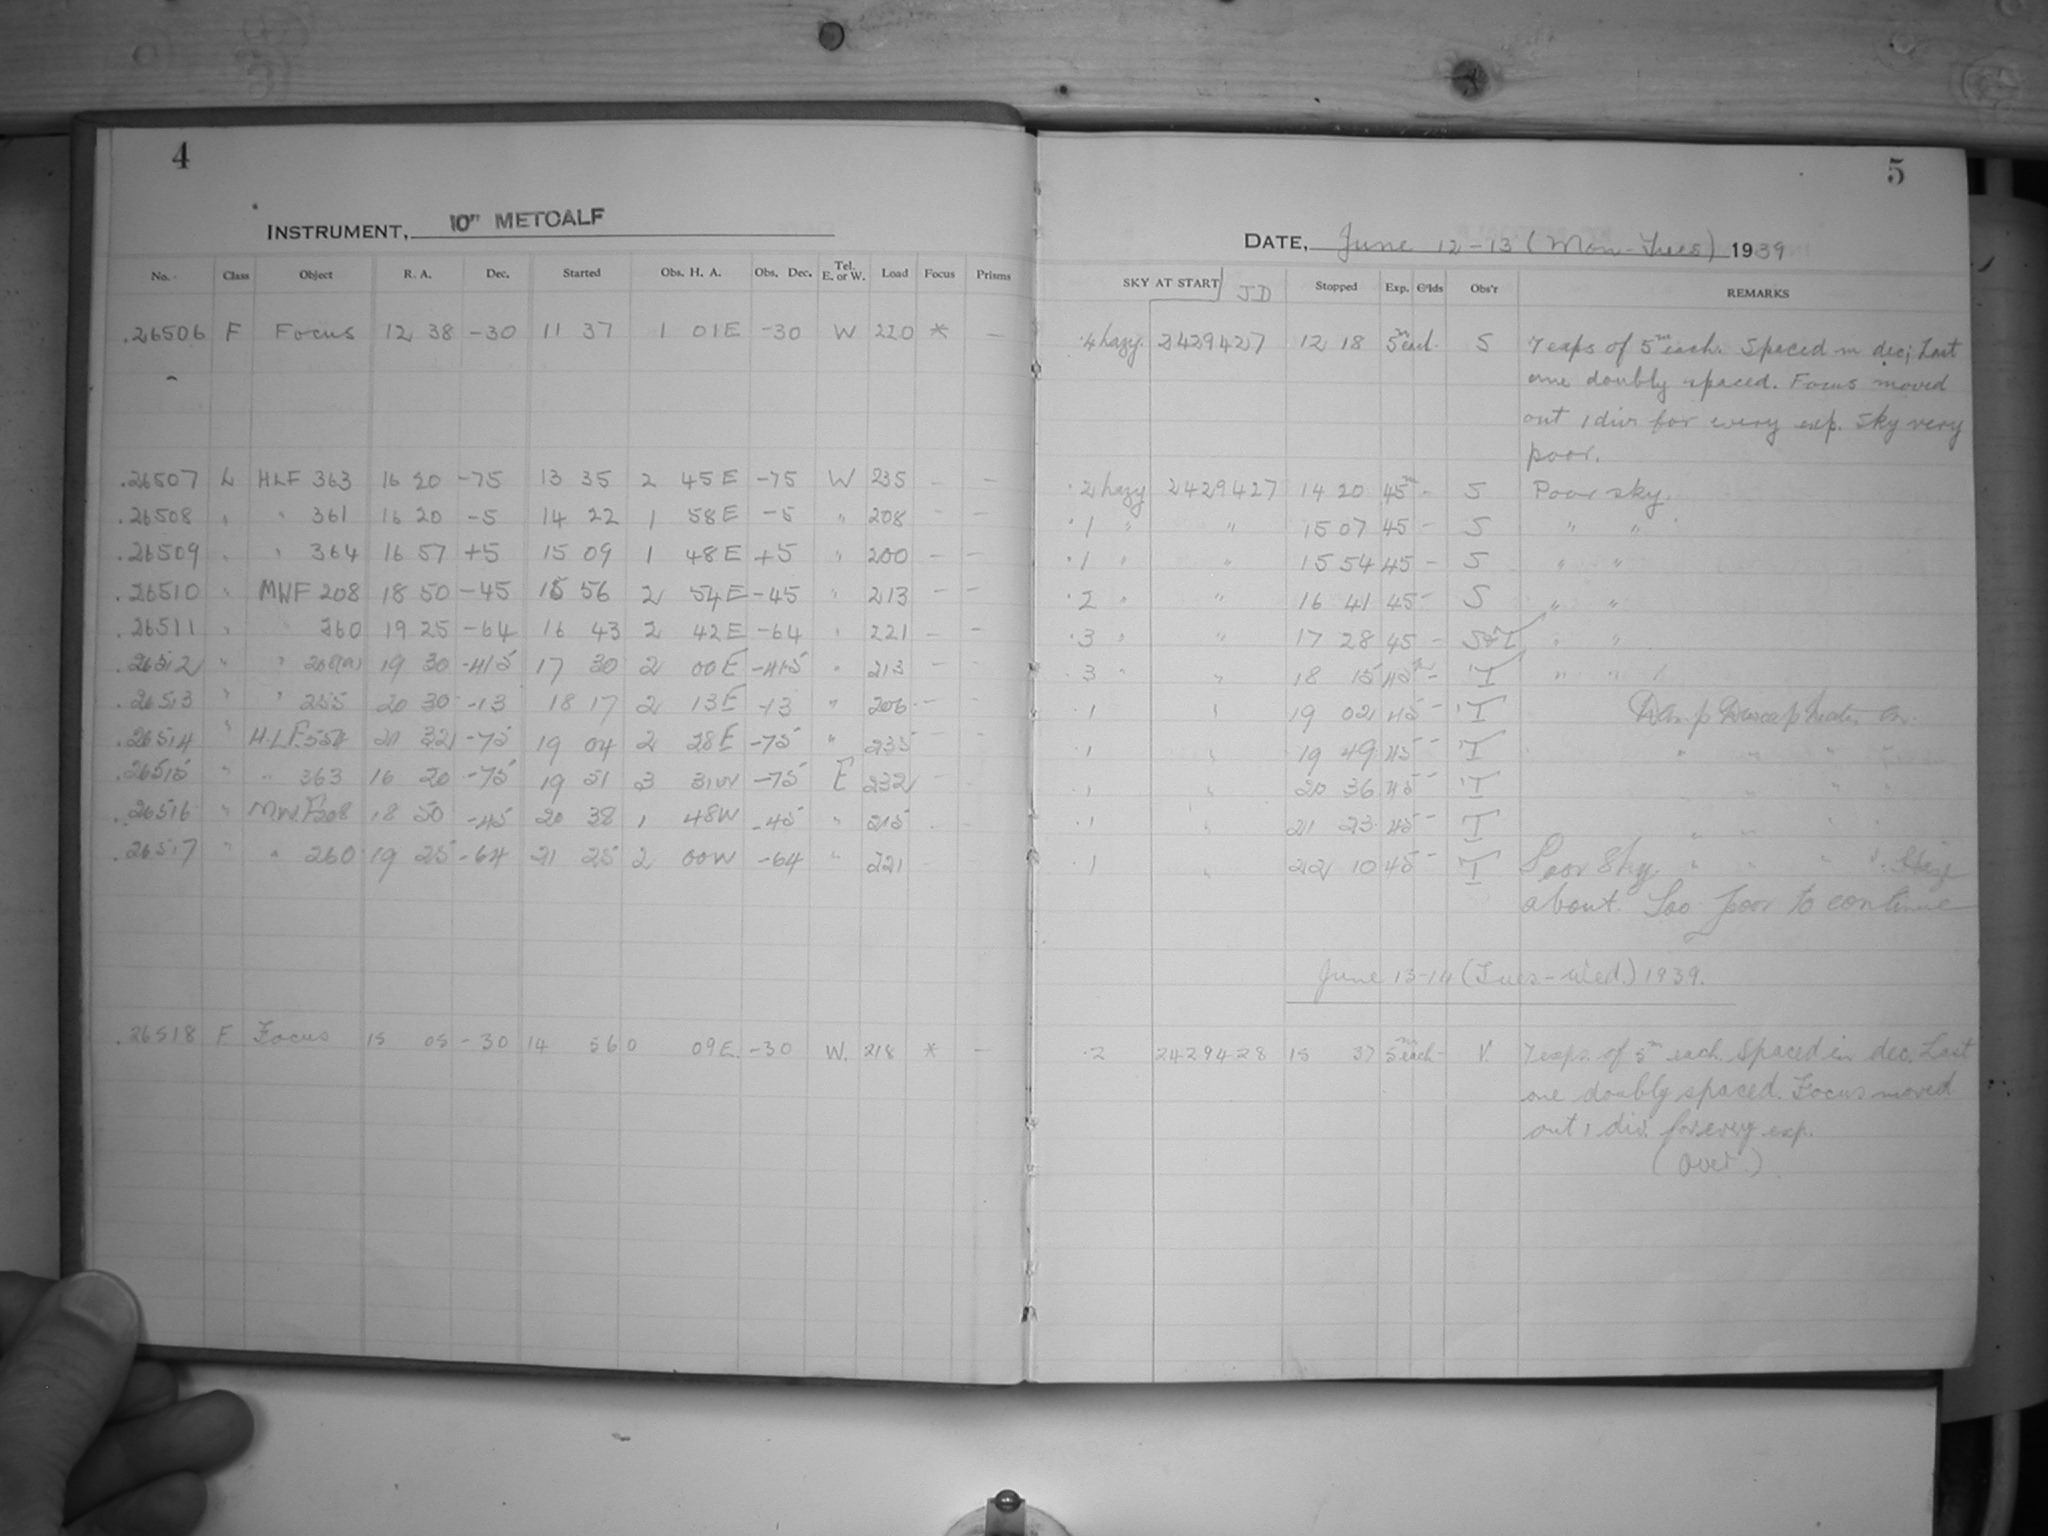 4
INSTRUMENT, 10" METCALF
No. Class Object R. A. Dec. Started Obs. H. A. Obs. Dec. Tel. E. or W. Load Focus Prisms
.26506 F Focus 12 38 -30 11 37 1 01E -30 W 220 * —
.26507 L HLF 363 16 20 -75 13 35 2 45E -75 W 235 - -
.26508 " " 361 16 20 -5 14 22 1 58E -5 " 208 - -
.26509 " " 364 16 57 +5 15 09 1 48E +5 " 200 - -
.26510 " MWF 208 18 50 -45 15 56 2 54E -45 " 213 - -
.26511 " " 260 19 25 -64 16 43 2 42E -64 " 221 - -
.26512 " " 19 30 -45 17 30 2 00E -45 " 213 - -
.26513 " " 255 20 30 -13 18 17 2 13E -13 " 206 - -
.26514 " HLF 21 32 -75 19 04 2 28E -75 " 235 - -
.26515 " " 363 16 20 -75 19 51 3 31W -75 E 232 -
.26516 " MWF 208 18 50 -45 20 38 1 48W -45 " 215 - -
.26517 " " 260 19 25 -64 21 25 2 00W -64 " 221 -
.26518 F Focus 15 05 -30 14 56 0 09E -30 W. 218 * —
5
DATE, June 12-13 (Mon-Tues) 1939
SKY AT START JD Stopped Exp. G'lds Obs'r REMARKS
.4 hazy. 2429427 12 18 5m each. S 7 exps of 5m each. Spaced in dec; Last
one doubly spaced. Focus moved
out 1 div for every exp. Sky very
poor.
.2 hazy 2429427 14 20 45m - S Poor sky.
.1 " " 15 07 45 - S " "
.1 " " 15 54 45 - S " "
.2 " " 16 41 45 - S " "
.3 " " 17 28 45 - S&T " "
.3 " " 18 15 45m - T " "
.1 " 19 02 45 - T
.1 " 19 49 45 - T
.1 " 20 36 45 - T
.1 " 21 23 45 - T
.1 " 22 10 45 - T Poor Sky. " " "
about. Too poor to continue
June 13-14 (Tues-Wed.) 1939.
.2 2429428 15 37 5m each - V. 7 exps. of 5m each. Spaced in dec. Last
one doubly spaced. Focus moved
out 1 div. for every exp.
(Over.)